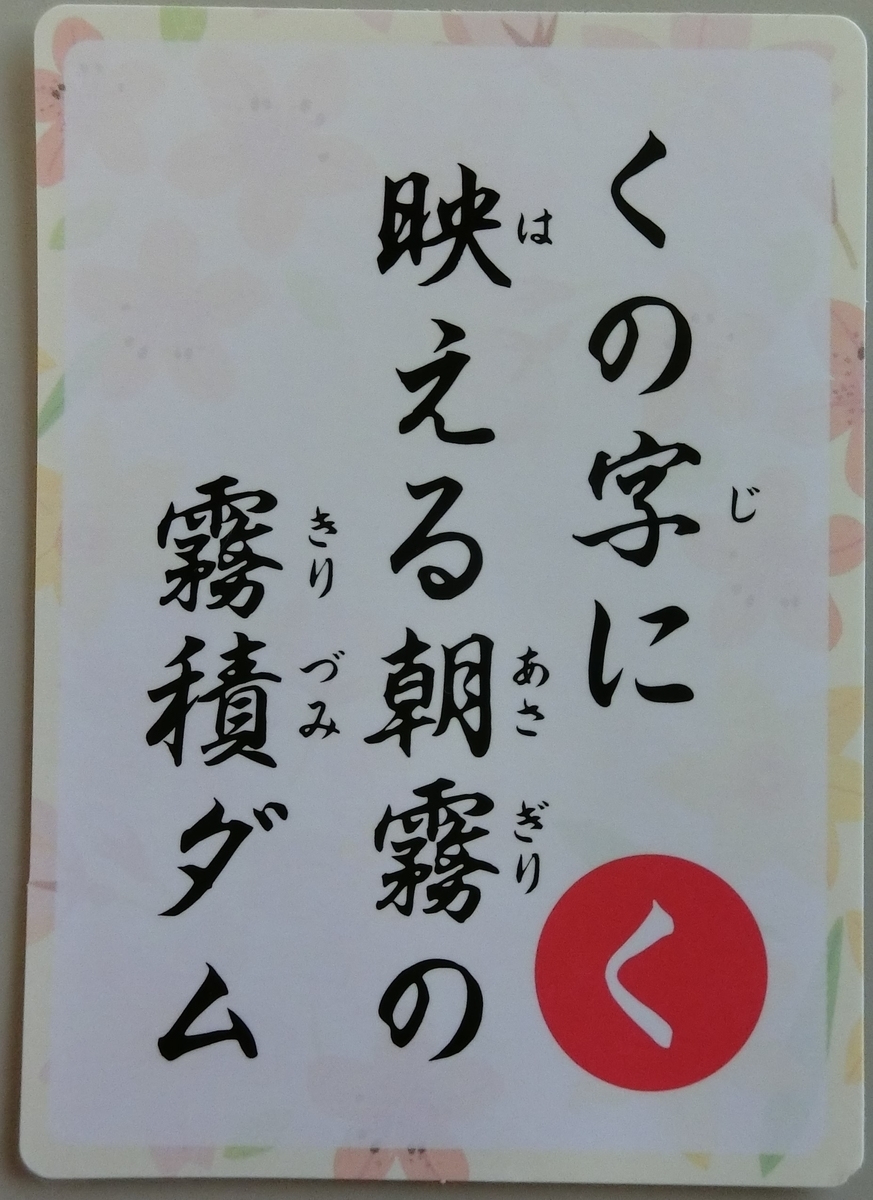 くの字に
じ
映える朝霧の
は
あさ
ぎり
霧積ダム
きり
づみ
く